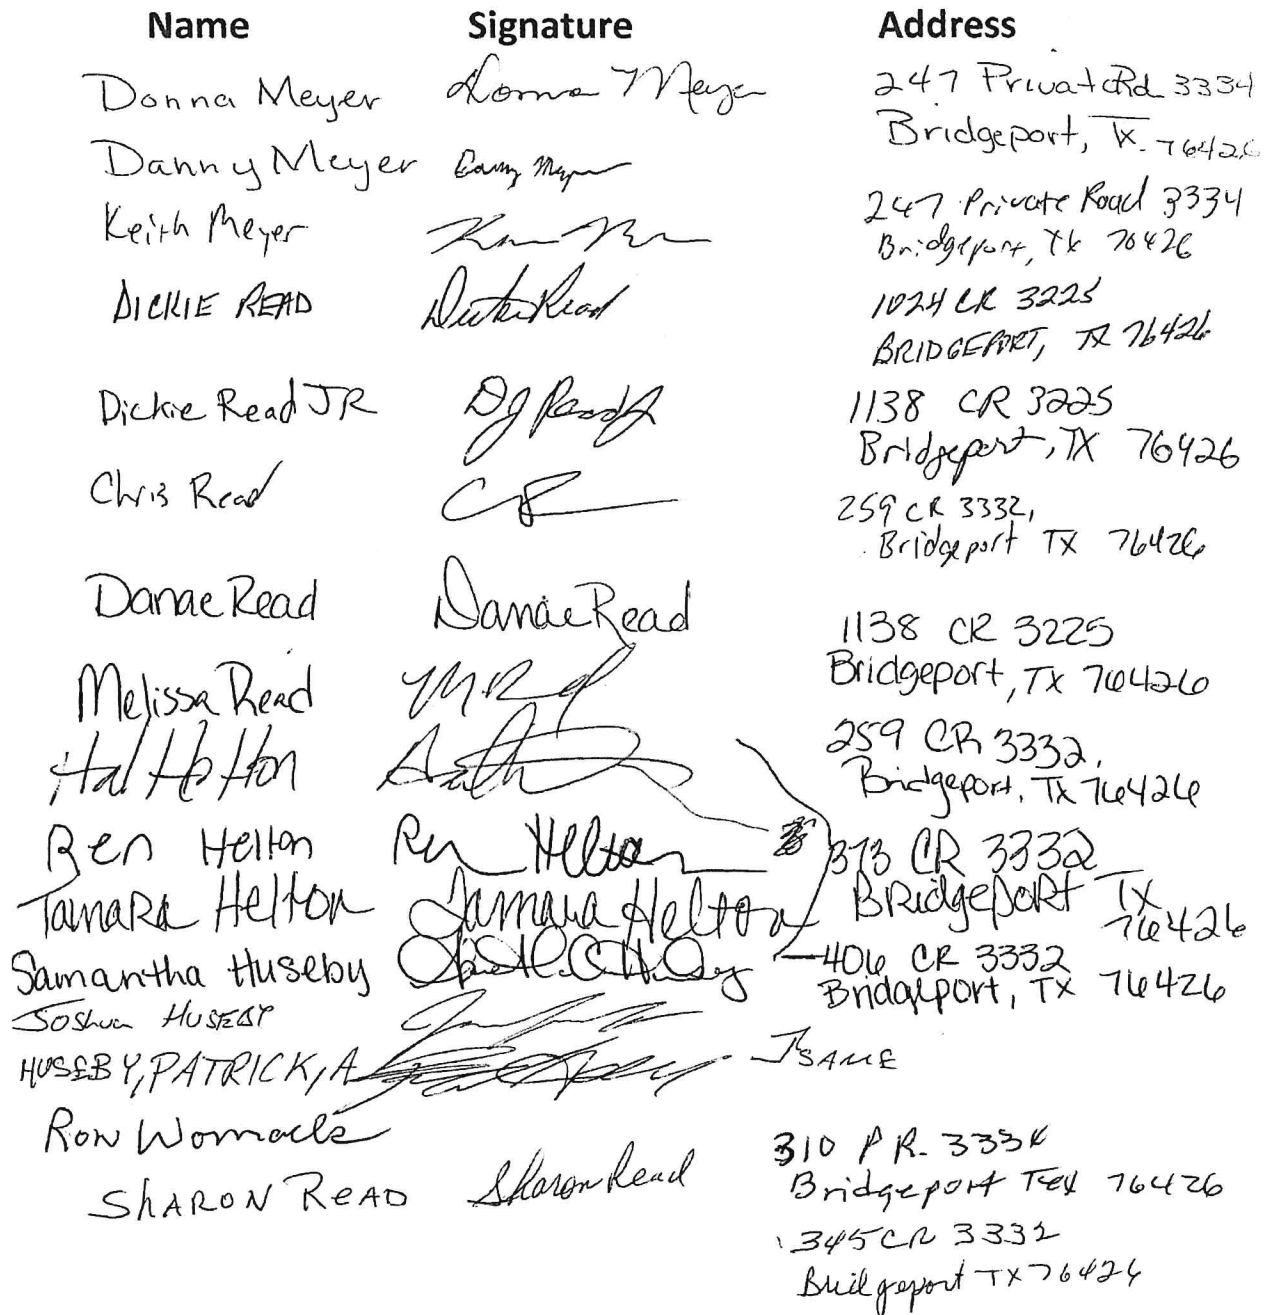 Name Signature Address
Donna Meyer Donna Meyer 247 Privat Rd 3334
Bridgeport, Tx. 76426
Danny Meyer Danny Meyer
247 Private Road 3334
Keith Meyer
Bridgeport, Tx 76426
DICKIE READ Dickie Read 1024 CR 3225
BRIDGEPORT, TX 76426
Dickie Read JR DJ Read Jr 1138 CR 3225
Bridgeport, TX 76426
Chris Read CR 259 CR 3332,
Bridgeport TX 76426
Danae Read Danae Read 1138 CR 3225
Bridgeport, TX 76426
Melissa Read
259 CR 3332,
Bridgeport, Tx 76426
Ben Helton Ben Helton 373 CR 3332
Tamara Helton Tamara Helton BRidgepoRt Tx
76426
Samantha Huseby 406 CR 3332
Bridgeport, Tx 76426
Joshua HUSEBY
HUSEBY, PATRICK, A SAME
Ron Womack
310 P R. 3334
SHARON READ Sharon Read Bridgeport Tex 76426
345 CR 3332
Bridgeport TX 76426